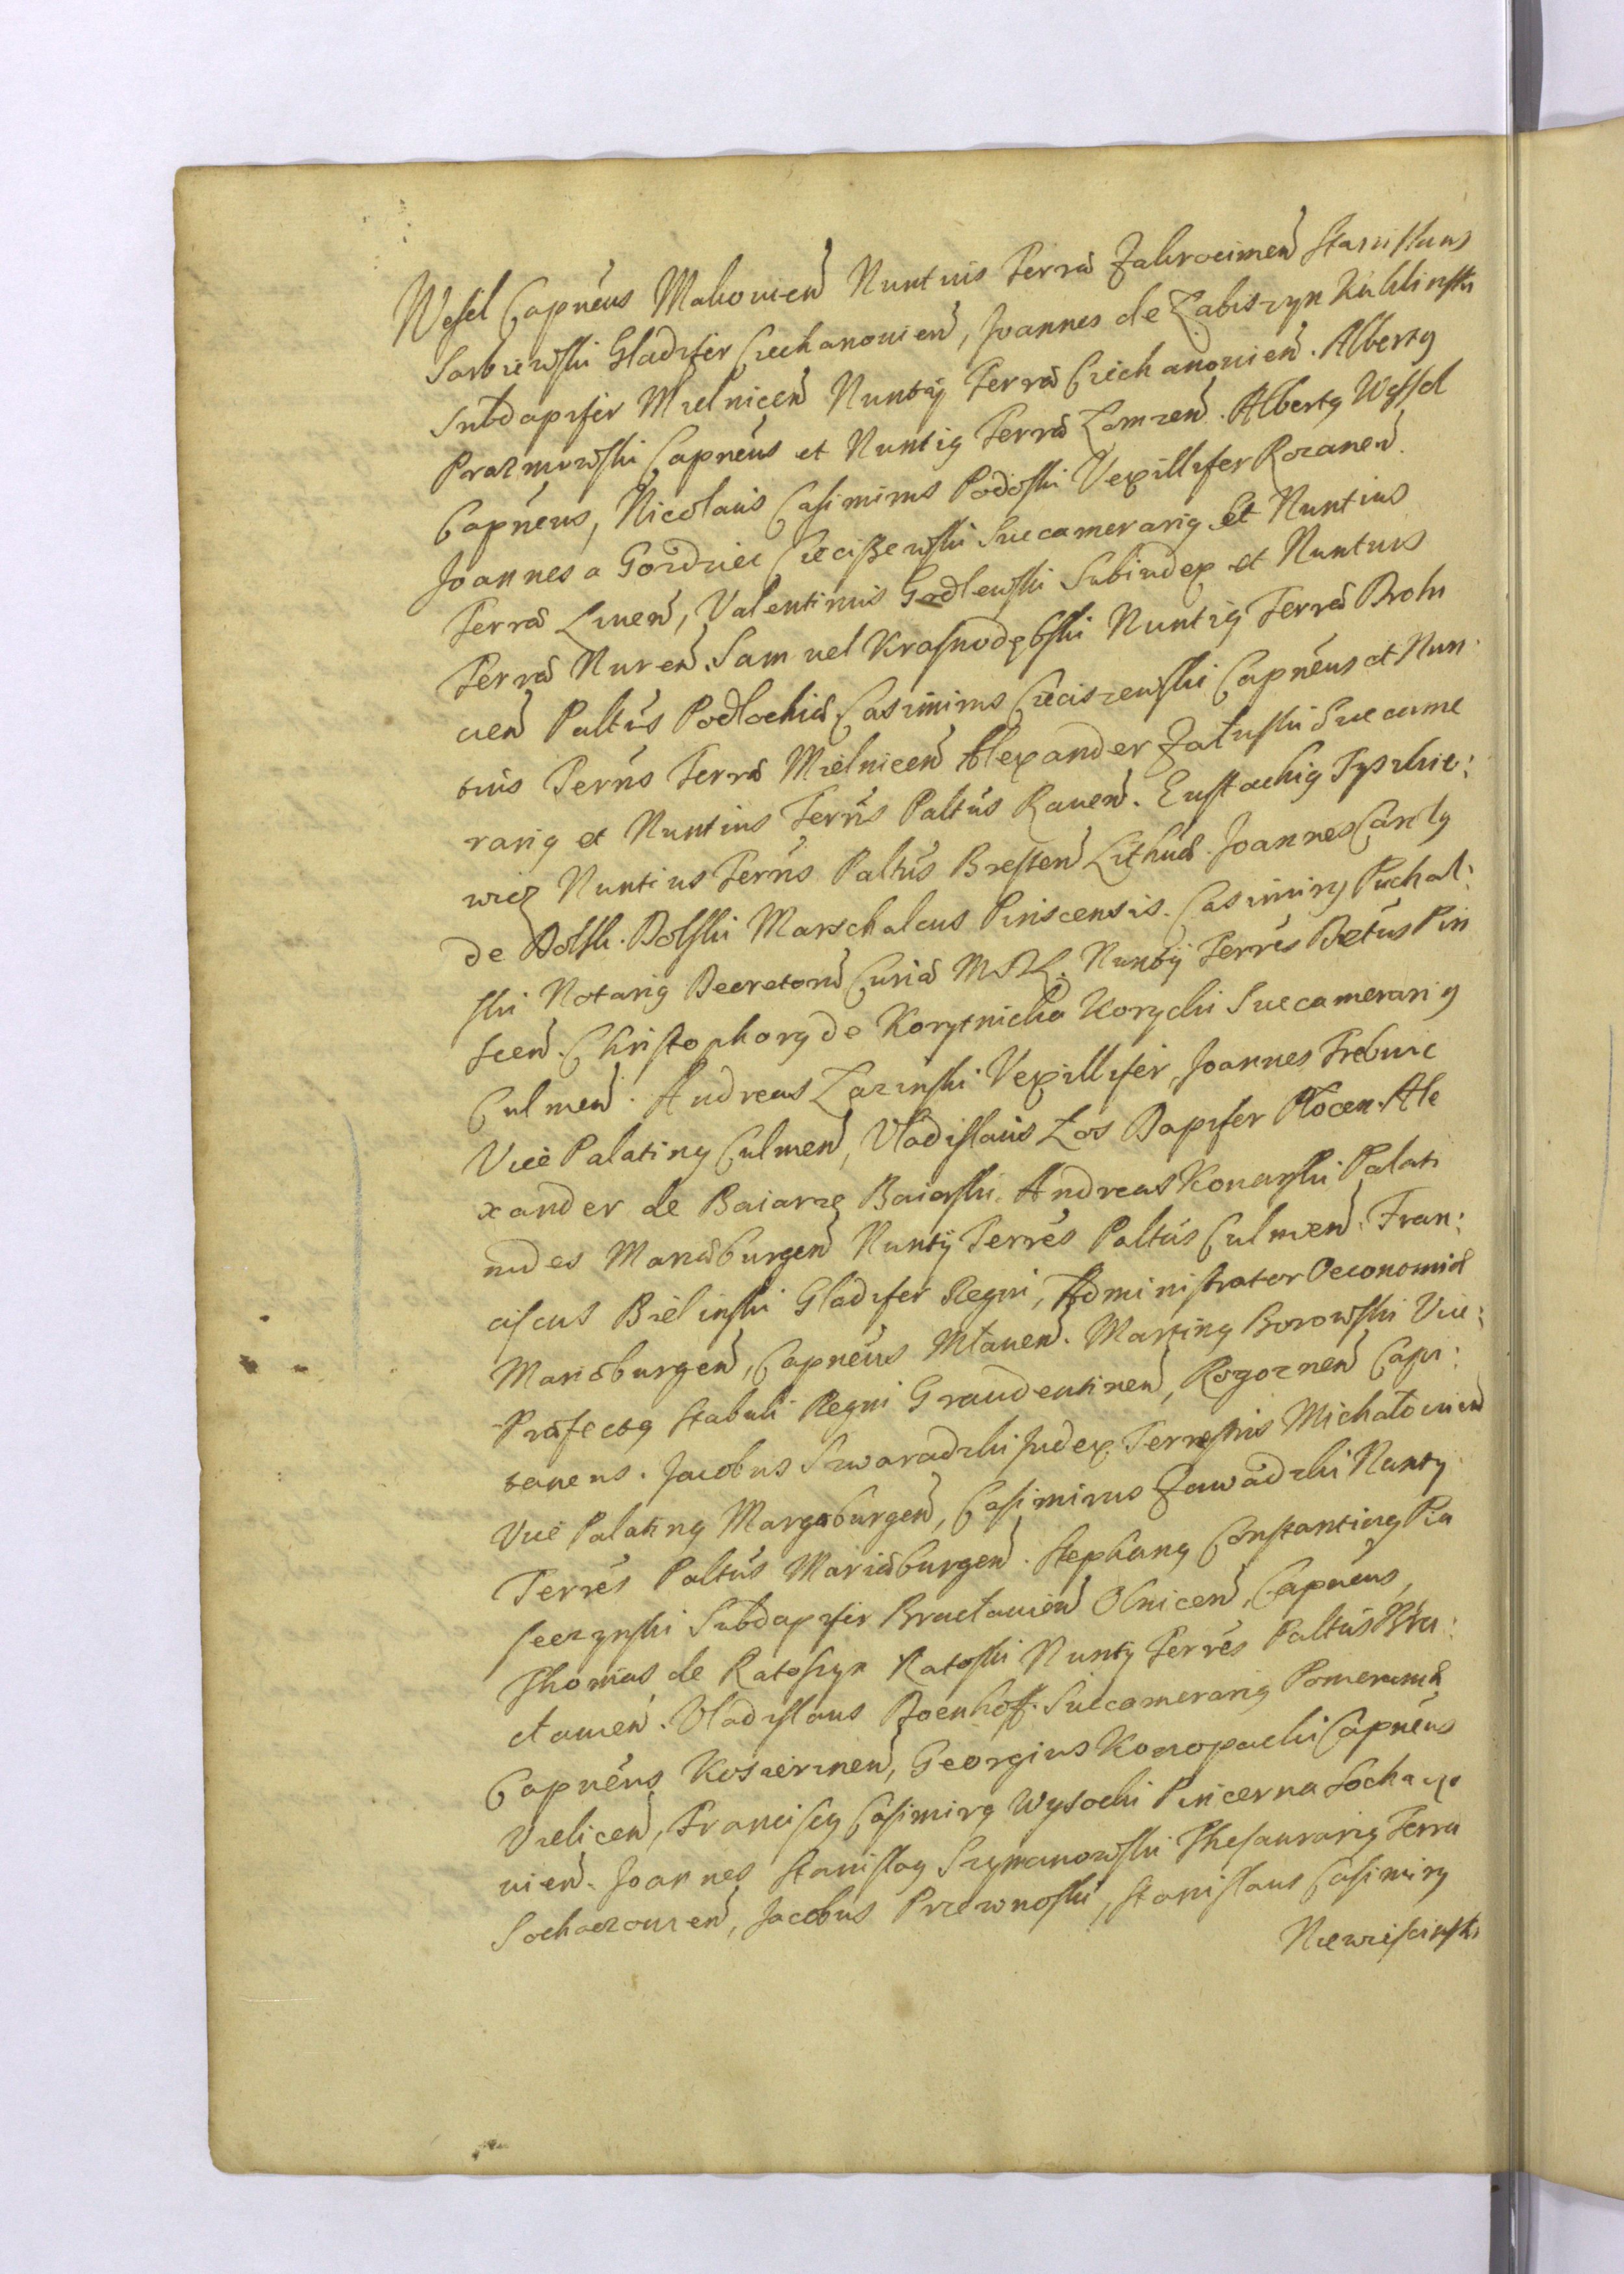 Wesel Capnéus Makovien̄ Nuntius Terræ Zakrocimen̄ Stanislaus
Sarbiewski Gladifer Ciechanovien̄, Joannes de Łabiszyn Kuklinski
Subdapifer Mielnicen̄ Nuntÿ Terræ Ciechanovien̄. Albertꝰ
Prazmowski Capnéus et Nuntiꝰ Terræ Łomzen̄. Albertꝰ Wessel
Capnéus, Nicolaus Casimirus Podoski Vexillifer Rozanen̄.
Joannes a Gozdziec Cieciszewski Succamerariꝰ et Nuntius
Terræ Liuen̄, Valentinus Godlewski Subiudex et Nuntius
Terræ Nuren̄. Samuel Krasnodębski Nuntiꝰ Terræ Brohi
cien̄ Paltus Podlachiæ. Casimirus Cieciszewski Capnéus et Nun
tius Terŕis Terræ Mielnicen̄ Alexander Załuski Succame
rariꝰ et Nuntius Terŕis Paltus Raven̄. Eustachiꝰ Tyszkie:
wicz Nuntius Terŕis Paltus Bresten̄ Lithuæ. Joannes Carolꝰ
de Dolsk. Dolski Marschalcus Pinscensis. Casimirꝰ Puchal:
ski Notariꝰ Decretorū Curiæ M.D.L. Nuntÿ Terŕes Dtus Pin
scen̄. Christophorꝰ de Korytnicka Korycki Succamerariꝰ
Culmen̄. Andreas Łozinski Vexillifer, Joannes Trebnic
Vice Palatinꝰ Culmen̄, Vladislaus Łos Dapifer Płocen. Ale
xander de Baiarze Baierski. Andreas Konarski Palati
nides Mariæburgen̄ Nuntÿ Terŕes Paltus Culmen̄. Fran:
ciscus Bielinski Gladifer Regni, Administrator Oeconomiæ
Mariæburgen̄, Capnéus Młaven̄. Martinꝰ Borowski Vice:
Præfectꝰ Stabuli Regni Graudentinen̄, Rogoznen̄ Capi:
taneus. Jacobus Szwaradzki Judex Terrestris Michałovien̄
Vice Palatinꝰ Mariæburgen̄, Casimirus Zawadzki Nuntÿ
Terŕes Paltus Mariæburgen̄. Stephanꝰ Constantinꝰ Pia
seczynski Subdapifer Bracłavien̄ Olnicen̄, Capnéus,
Thomas de Ratoszyn Ratoski Nuntÿ Terŕes Paltus Bra:
cłavien̄. Vladislaus Doenhoff. Succamerariꝰ Pomeraniæ
Capnéus Koscierznen̄, Georgius Konopacki Capnéus
Vielicen̄, Franciscꝰ Casimirꝰ Wysocki Pincerna Sochaczo
vien̄. Joannes Stanislaꝰ Szymanowski Thesaurariꝰ Terræ
Sochaczovien̄, Jacobus Przewnoski, Stanislaus Casimirꝰ
Niewiescinski